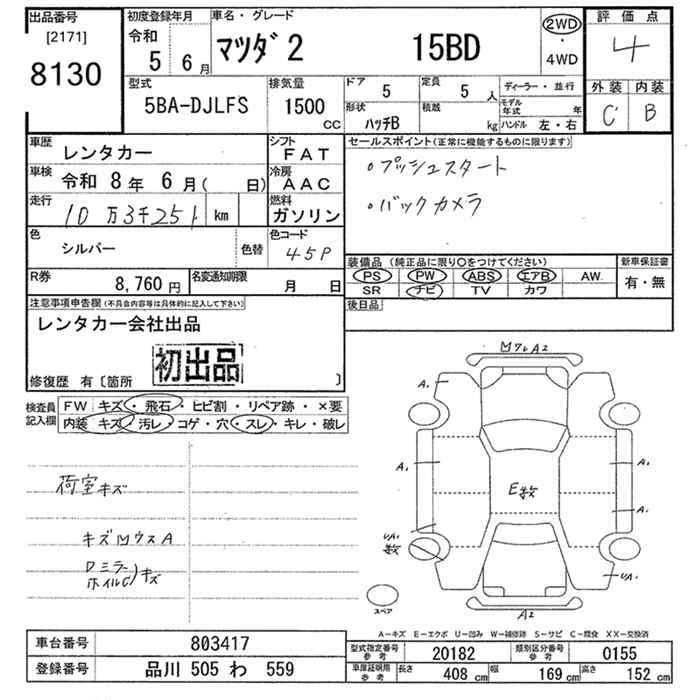 出品番号
[2171]
8130
初度登録年月
令和
5 6月
車名・グレード
マツダ2 15BD
2WD
・
4WD
評価点
4
外装 内装
C B
型式
5BA-DJLFS
排気量
1500
CC
ドア 5
形状
ハッチB
定員 5 人
積載 kg
ディーラー・並行
モデル年式 年
ハンドル 左・右
車歴
レンタカー
シフト
FAT
車検 令和 8年 6月( 日)
冷房
AAC
走行
10万3千251 km
燃料
ガソリン
色
シルバー
色替
色コード
45P
R券 8,760円
名変通知期限 月 日
セールスポイント(正常に機能するものに限ります)
・プッシュスタート
・バックカメラ
装備品(純正品に限り○をつけてください)
PS PW ABS エアB AW
SR ナビ TV カワ
新車保証書
有・無
後日品
注意事項申告欄(不具合内容等は具体的に記入して下さい)
レンタカー会社出品
初出品
修復歴 有〔箇所 〕
検査員
記入欄
FW キズ・飛石・ヒビ割・リペア跡・×要
内装 キズ・汚レ・コゲ・穴・スレ・キレ・破レ
荷室キズ
キズ凹ウスA
ミラー
ホイルC)キズ
A2
A.
A.
A.
A.
E数
UA.
数
UA.
A2
スペア
A-キズ E-エクボ U-凹み W-補修跡 S-サビ C-腐食 XX-交換済
車台番号 803417
登録番号 品川 505 わ 559
型式指定番号
参考
20182
類別区分番号
参考
0155
車庫証明用
参考
長さ 408 cm
幅 169 cm
高さ 152 cm